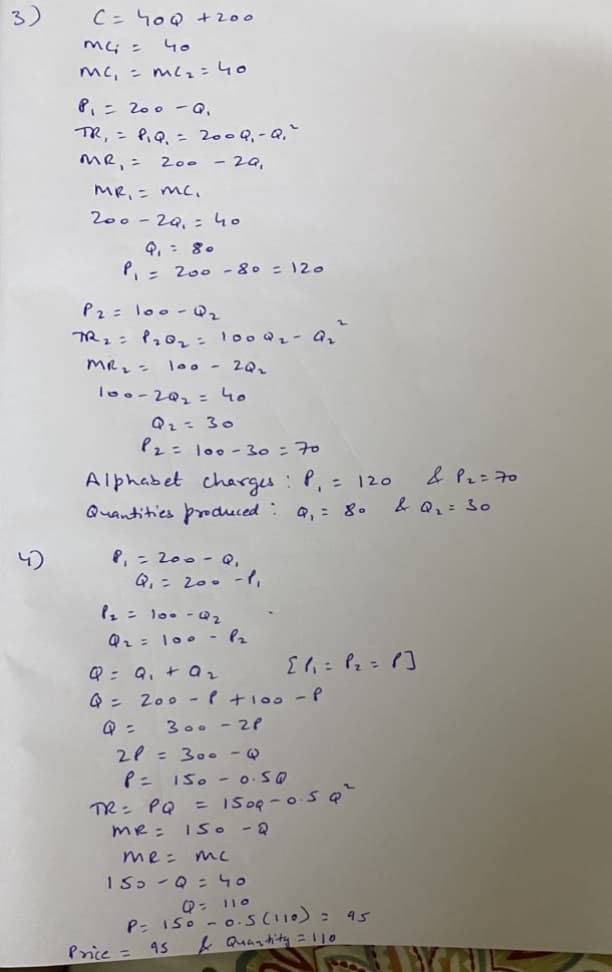 3) C = 40Q + 200
MCi = 40
MC₁ = MC₂ = 40
P₁ = 200 - Q₁
TR₁ = P₁Q₁ = 200Q₁ - Q₁²
MR₁ = 200 - 2Q₁
MR₁ = MC₁
200 - 2Q₁ = 40
Q₁ = 80
P₁ = 200 - 80 = 120
P₂ = 100 - Q₂
TR₂ = P₂Q₂ = 100Q₂ - Q₂²
MR₂ = 100 - 2Q₂
100 - 2Q₂ = 40
Q₂ = 30
P₂ = 100 - 30 = 70
Alphabet charges : P₁ = 120 & P₂ = 70
Quantities produced : Q₁ = 80 & Q₂ = 30
4) P₁ = 200 - Q₁
Q₁ = 200 - P₁
P₂ = 100 - Q₂
Q₂ = 100 - P₂
Q = Q₁ + Q₂ [P₁ = P₂ = P]
Q = 200 - P + 100 - P
Q = 300 - 2P
2P = 300 - Q
P = 150 - 0.5Q
TR = PQ = 150Q - 0.5Q²
MR = 150 - Q
MR = MC
150 - Q = 40
Q = 110
P = 150 - 0.5(110) = 95
Price = 95 & Quantity = 110